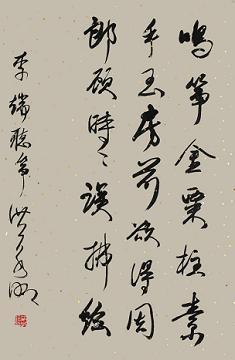 鸣筝金粟柱素
手玉房前欲得周
郎顾时々误拂弦
李端听筝